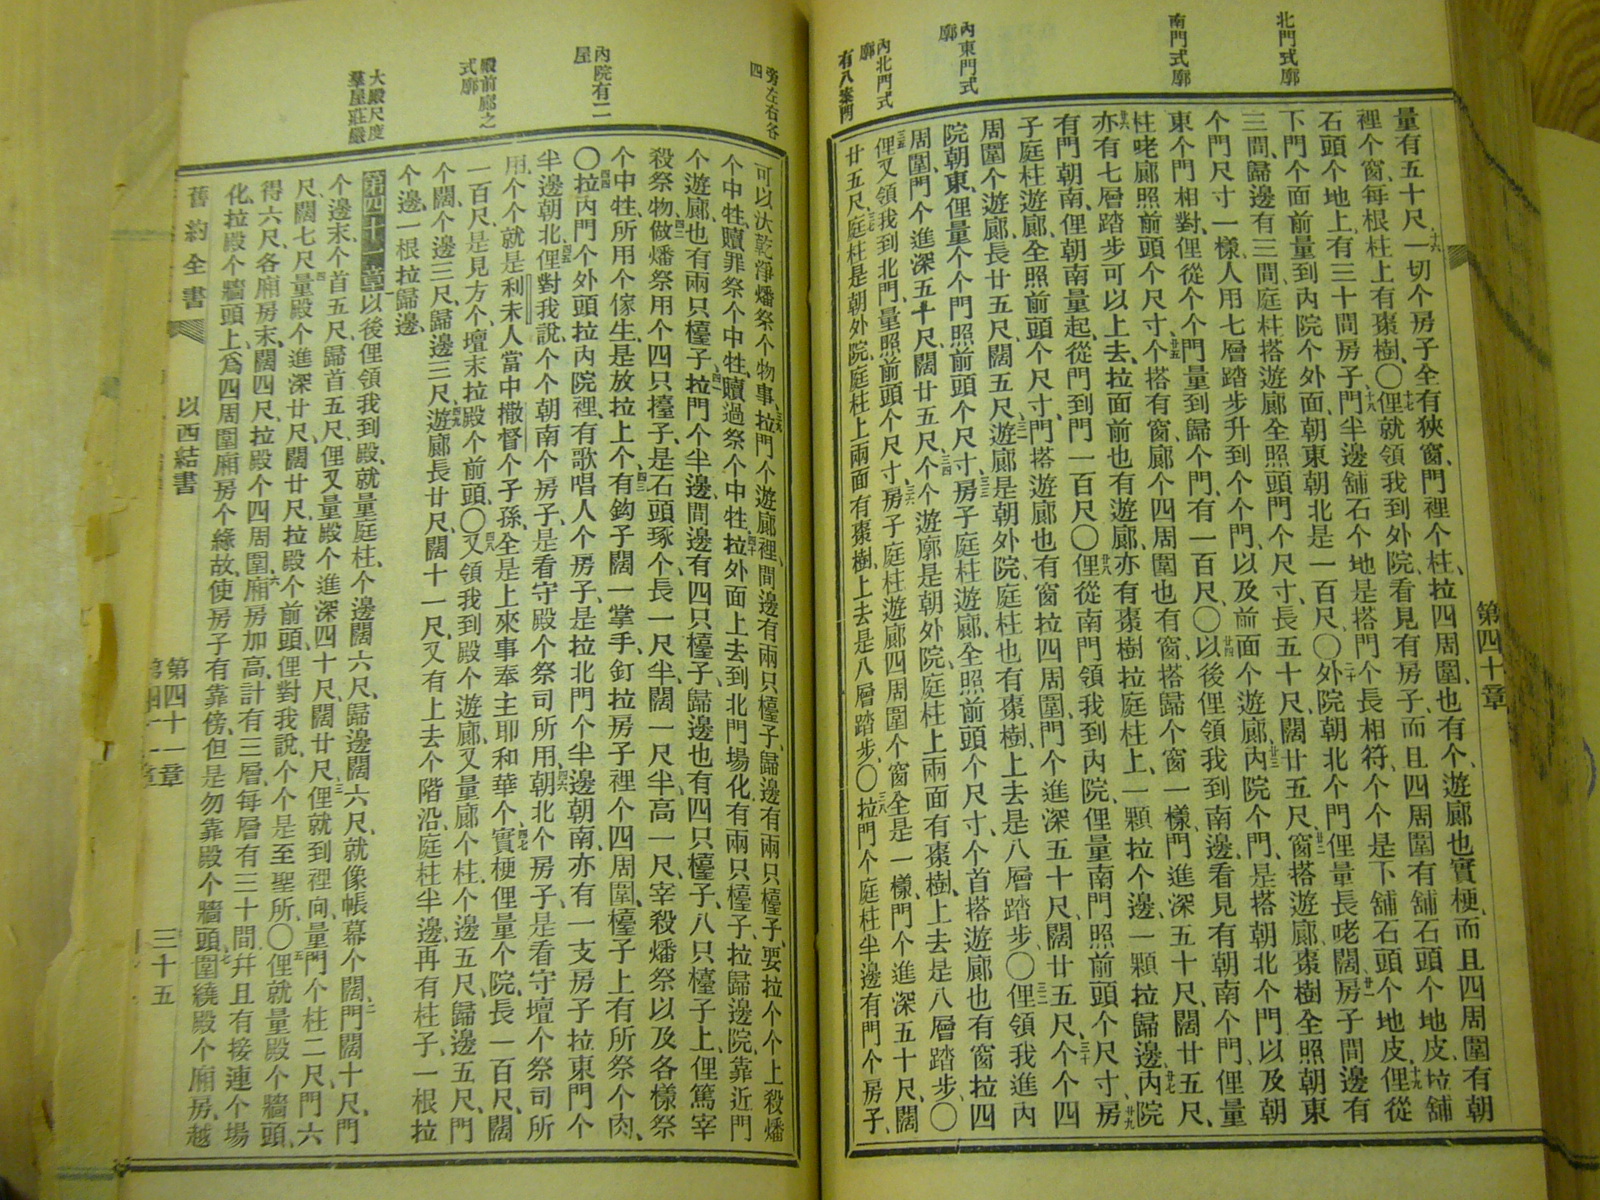 北門式廓
南門式廓
內東門式廓
內北門式廓
有八案門
第四十章
量有五十尺一切个房子全有狹窗門裡个柱拉四周圍也有个遊廊也實梗而且四周圍有朝
裡个窗每根柱上有棗樹〇俚就領我到外院看見有房子而且四周圍有舖石頭个地皮垃舖
石頭个地上有三十間房子門半邊舖石个地是搭門个長相符个个是下舖石頭个地皮俚從
下門个面前量到內院个外面朝東朝北是一百尺〇外院朝北个門俚量長咾闊房子間邊有
三間歸邊有三間庭柱搭遊廊全照頭門个尺寸長五十尺闊廿五尺窗搭遊廊棗樹全照朝東
个門尺寸一樣人用七層踏步升到个个門以及前面个遊廊內院个門是搭朝北个門以及朝
東个門相對俚從个个門量到歸个門有一百尺〇以後俚領我到南邊看見有朝南个門俚量
柱咾廊照前頭个尺寸个搭有窗廊个四周圍也有窗搭歸个窗一樣門進深五十尺闊廿五尺
亦有七層踏步可以上去拉面前也有遊廊亦有棗樹拉庭柱上一顆拉个邊一顆拉歸邊內院
有門朝南俚朝南量起從門到門一百尺〇俚從南門領我到內院俚量南門照前頭个尺寸房
子庭柱遊廊全照前頭个尺寸門搭遊廊也有窗拉四周圍門个進深五十尺闊廿五尺个个四
周圍个遊廊長廿五尺闊五尺遊廊是朝外院庭柱也有棗樹上去是八層踏步〇俚領我進內
院朝東俚量个个門照前頭个尺寸房子庭柱遊廊全照前頭个尺寸个首搭遊廊也有窗拉四
周圍門个進深五十尺闊廿五尺个个遊廓是朝外院庭柱上兩面有棗樹上去是八層踏步〇
俚又領我到北門量照前頭个尺寸房子庭柱遊廊四周圍个窗全是一樣門个進深五十尺闊
廿五尺庭柱是朝外院庭柱上兩面有棗樹上去是八層踏步〇拉門个庭柱半邊有門个房子
旁左右各四
內院有二屋
殿前廊之式廓
大殿尺度羣屋莊嚴
可以汏乾淨燔祭个物事拉門个遊廊裡間邊有兩只檯子歸邊有兩只檯子要拉个个上殺燔
个中牲贖罪祭个中牲贖過祭个中牲拉外面上去到北門場化有兩只檯子拉歸邊院靠近門
个遊廊也有兩只檯子拉門个半邊間邊有四只檯子歸邊也有四只檯子八只檯子上俚篤宰
殺祭物做燔祭用个四只檯子是石頭琢个長一尺半闊一尺半高一尺宰殺燔祭以及各樣祭
个中牲所用个傢生是放拉上个有鈎子闊一掌手釘拉房子裡个四周圍檯子上有所祭个肉
〇拉內門个外頭拉內院裡有歌唱人个房子是拉北門个半邊朝南亦有一支房子拉東門个
半邊朝北俚對我說个个朝南个房子是看守殿个祭司所用朝北个房子是看守壇个祭司所
用个个就是利未人當中撒督个子孫全是上來事奉主耶和華个實梗俚量个院長一百尺闊
一百尺是見方个壇末拉殿个前頭〇又領我到殿个遊廊又量廊个柱个邊五尺歸邊五尺門
个闊个邊三尺歸邊三尺遊廊長廿尺闊十一尺又有上去个階沿庭柱半邊再有柱子一根拉
个邊一根拉歸邊
第四十一章以後俚領我到殿就量庭柱个邊闊六尺歸邊闊六尺就像帳幕个闊門闊十尺門
个邊末个首五尺歸首五尺俚又量殿个進深四十尺闊廿尺俚就到裡向量門个柱二尺門六
尺闊七尺量殿个進深廿尺闊廿尺拉殿个前頭俚對我說个个是至聖所〇俚就量殿个牆頭
得六尺各廂房末闊四尺拉殿个四周圍廂房加高計有三層每層有三十間幷且有接連个場
化拉殿个牆頭上爲四周圍廂房个緣故使房子有靠傍但是勿靠殿个牆頭圍繞殿个廂房越
舊約全書 以西結書 第四十一章 三十五